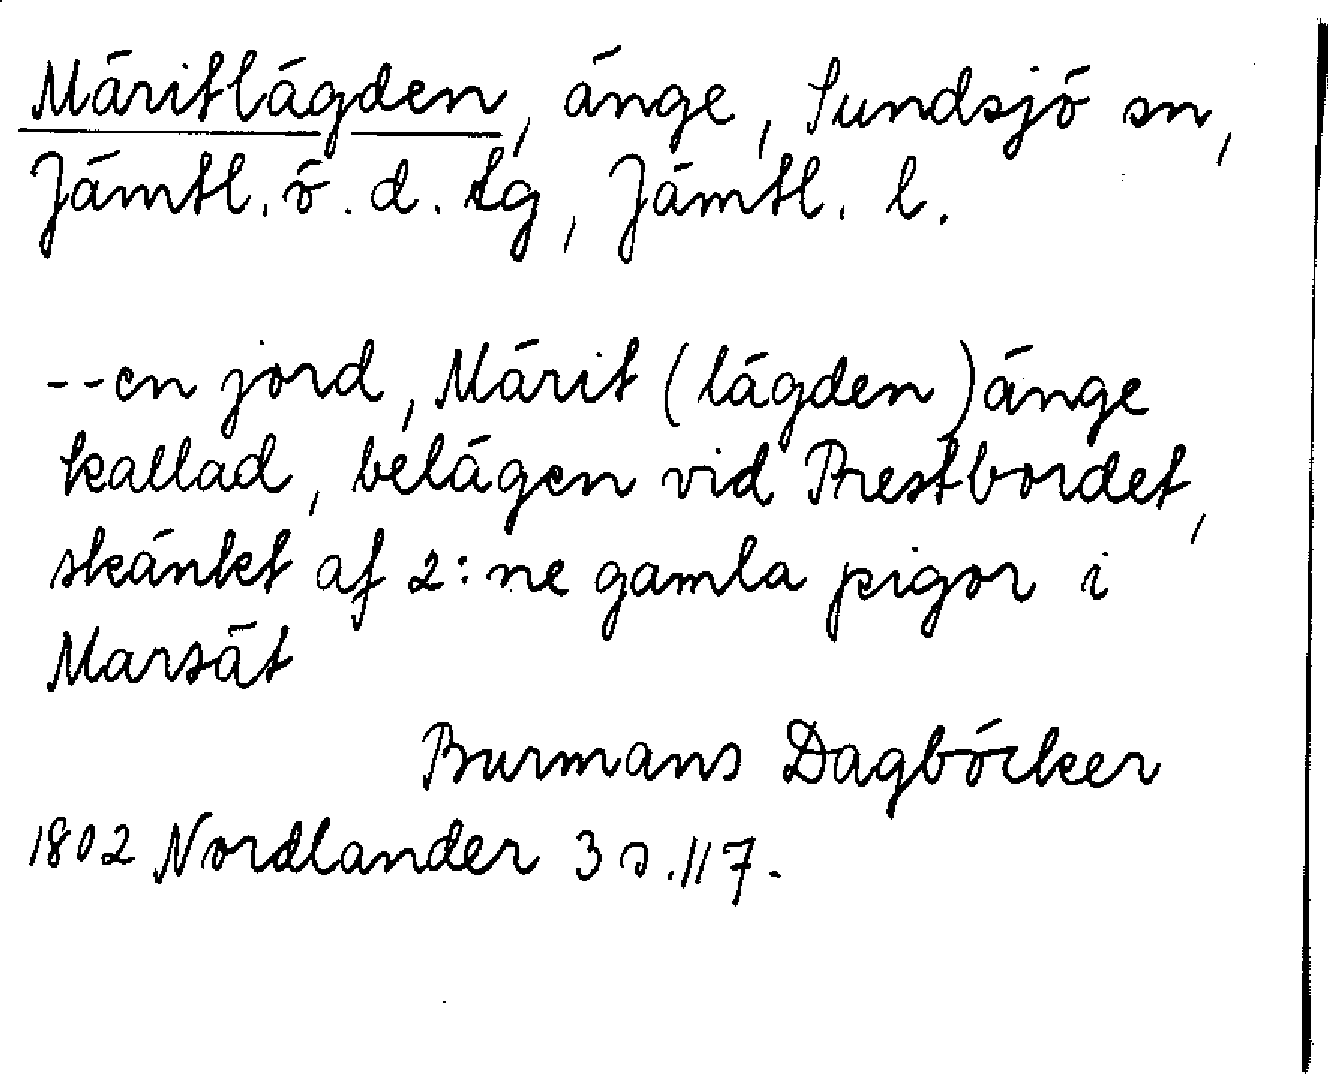 Märitlägden, änge, Sundsjö sn,
Jämtl. ö. d. tg, Jämtl. l.
--en jord, Märit (lägden) änge
kallad, belägen vid Prestbordet,
skänkt af 2:ne gamla pigor i
Marsät
Burmans Dagböcker
1802 Nordlander 3 s. 117.